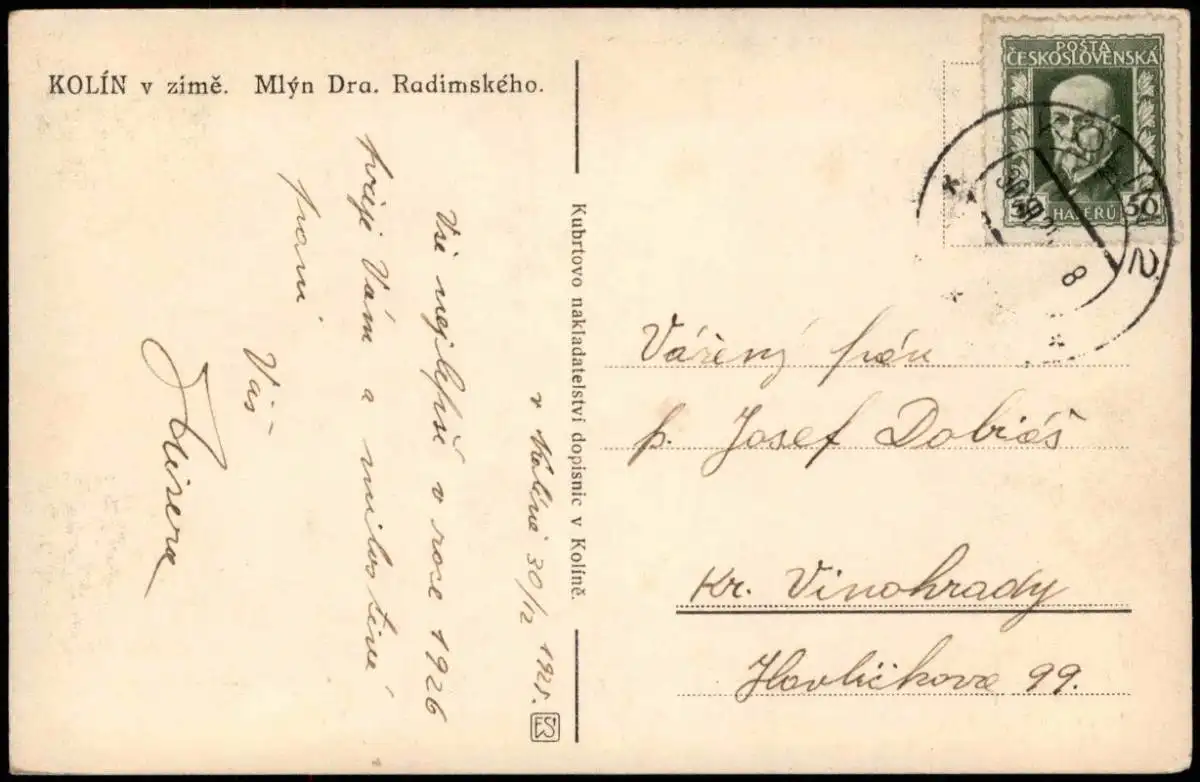 KOLÍN v zimě. Mlýn Dra. Radimského.
v Kolíně 30/12 1925.
Vše nejlepší v roce 1926
přeje Vám a milostivé
paní
Váš
Kubrtovo nakladatelství dopisnic v Kolíně.
POŠTA
ČESKOSLOVENSKÁ
50 HALÉŘŮ 50
KOLÍN 2
8
Vážený pán
p. Josef Dobiáš
Kr. Vinohrady
Havlíčkova 99.